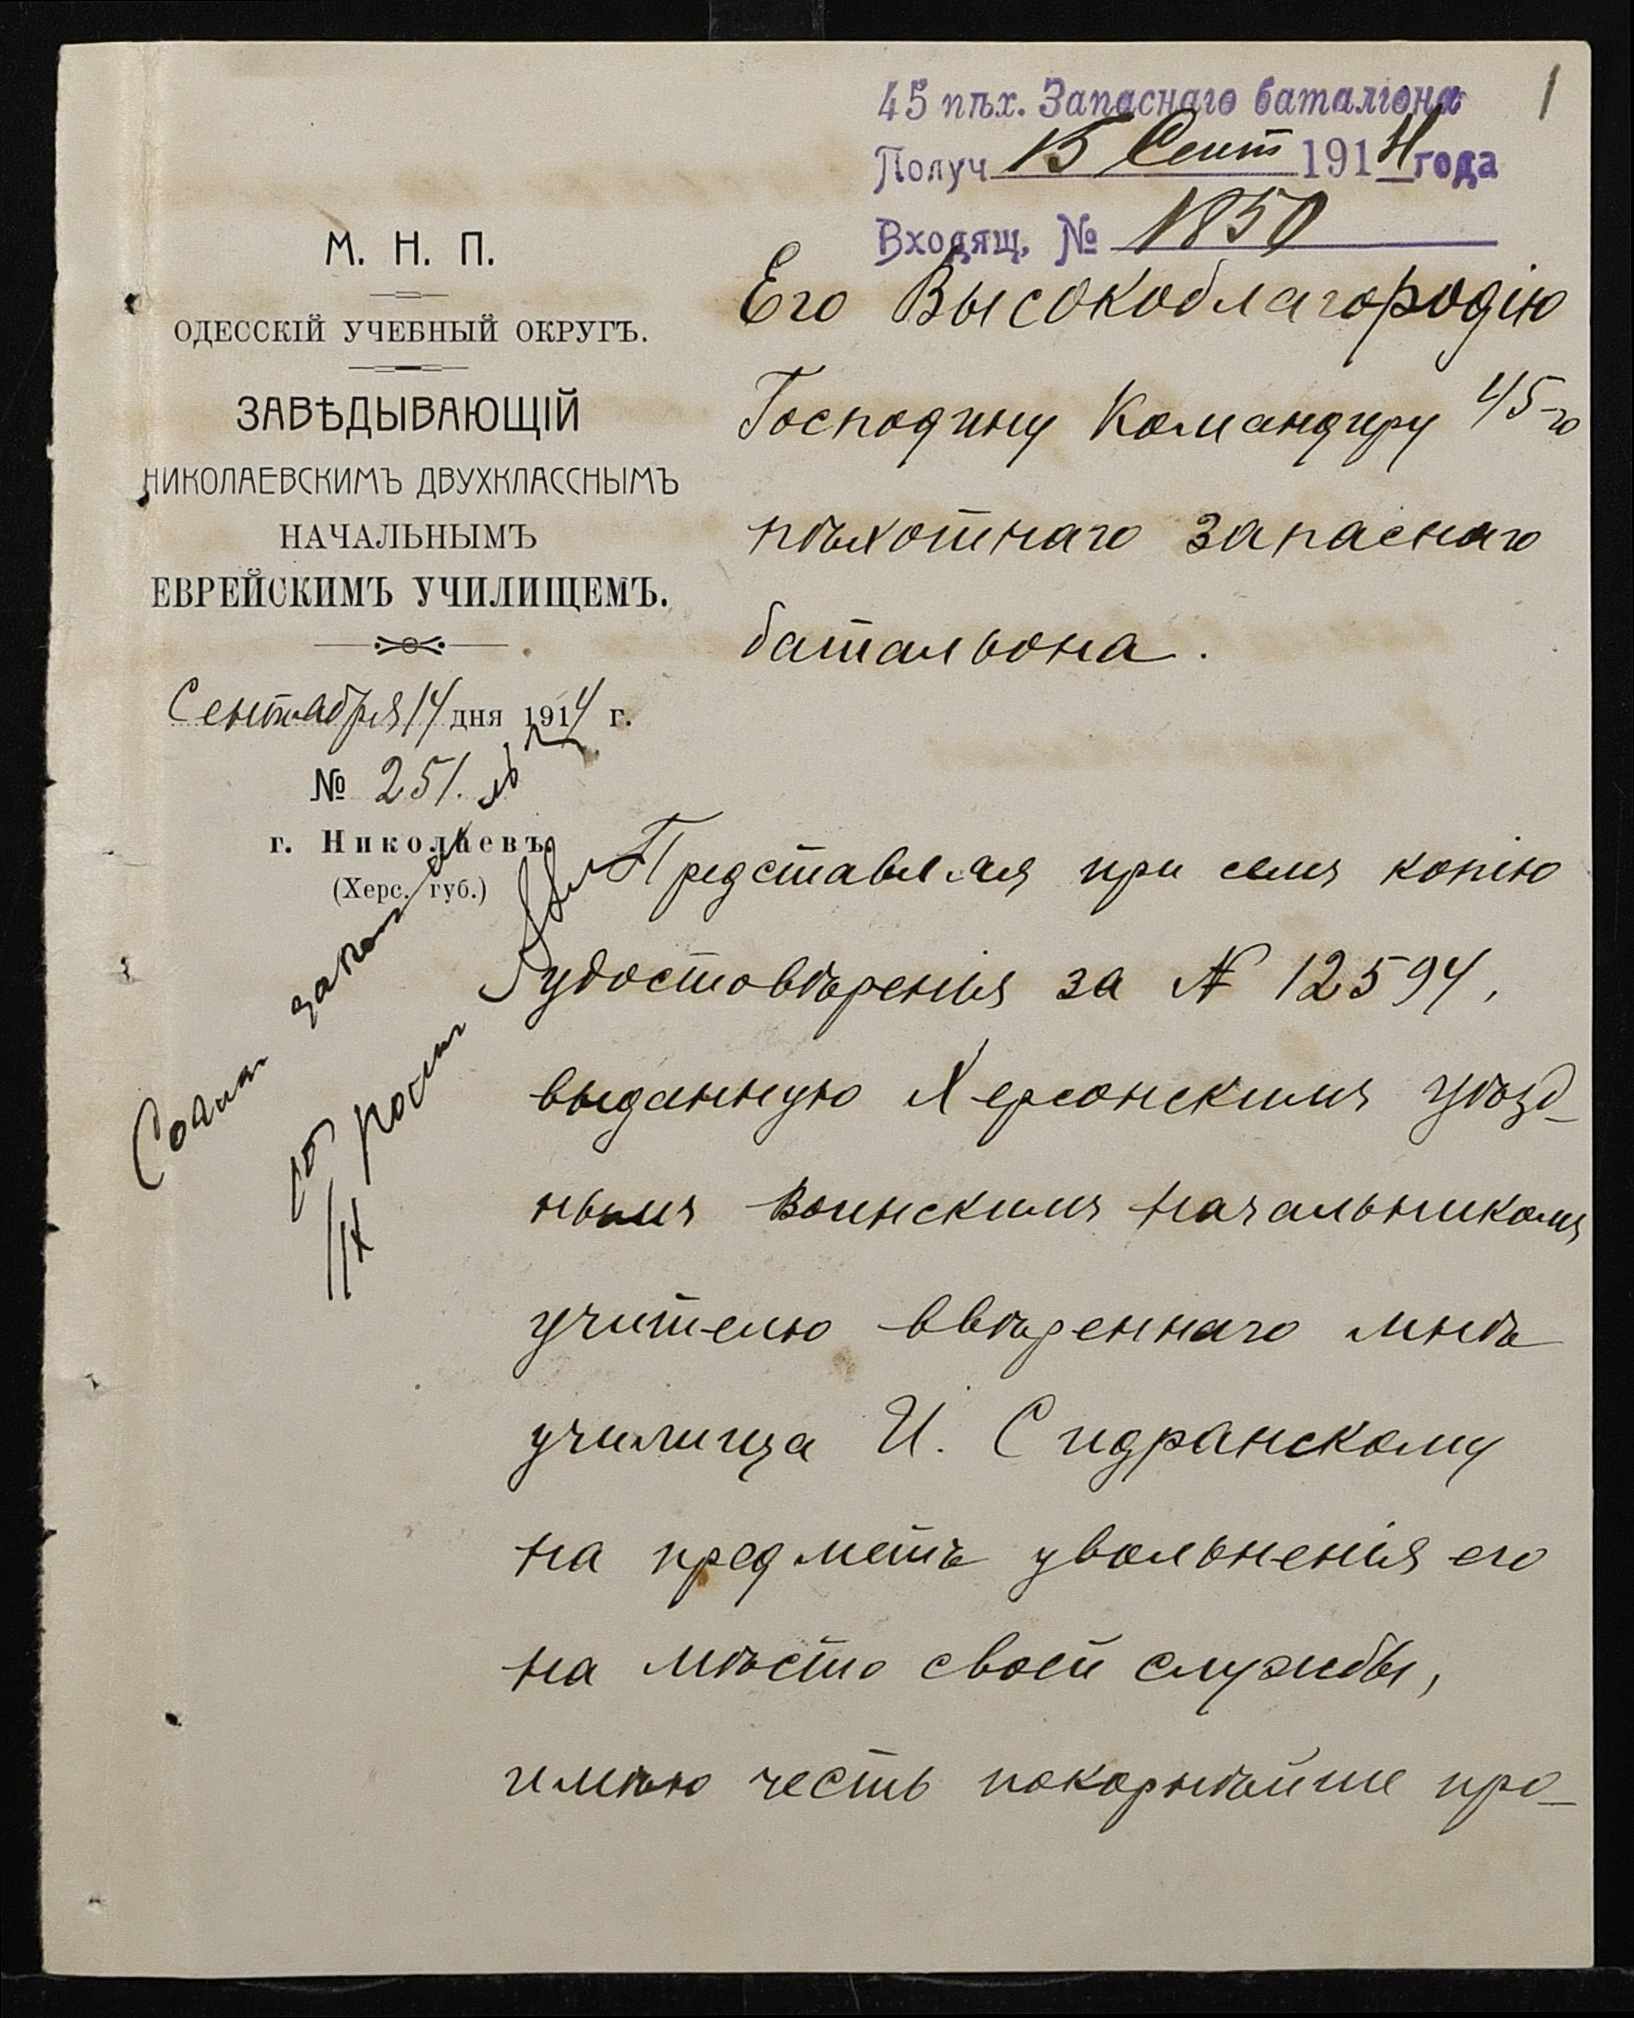 1
45 пѣх. Запаснаго баталіона
Получ 15 Сент 1914 года
Входящ. № 1850
М. Н. П.
ОДЕССКІЙ УЧЕБНЫЙ ОКРУГЪ.
ЗАВѢДЫВАЮЩІЙ
НИКОЛАЕВСКИМЪ ДВУХКЛАССНЫМЪ
НАЧАЛЬНЫМЪ
ЕВРЕЙСКИМЪ УЧИЛИЩЕМЪ.
Сентября 14 дня 1914 г.
№ 251.
г. Николаевъ
(Херс. губ.)
Его Высокоблагородію
Господину Командиру 45-го
пѣхотнаго запаснаго
батальона.
Представляя при семъ копію
удостовѣренія за № 12594,
выданную Херсонскимъ Уѣзд-
нымъ Воинскимъ Начальникомъ
учителю ввѣреннаго мнѣ
училища И. Сидранскому
на предметъ увольненія его
на мѣсто своей службы,
имѣю честь покорнѣйше про-